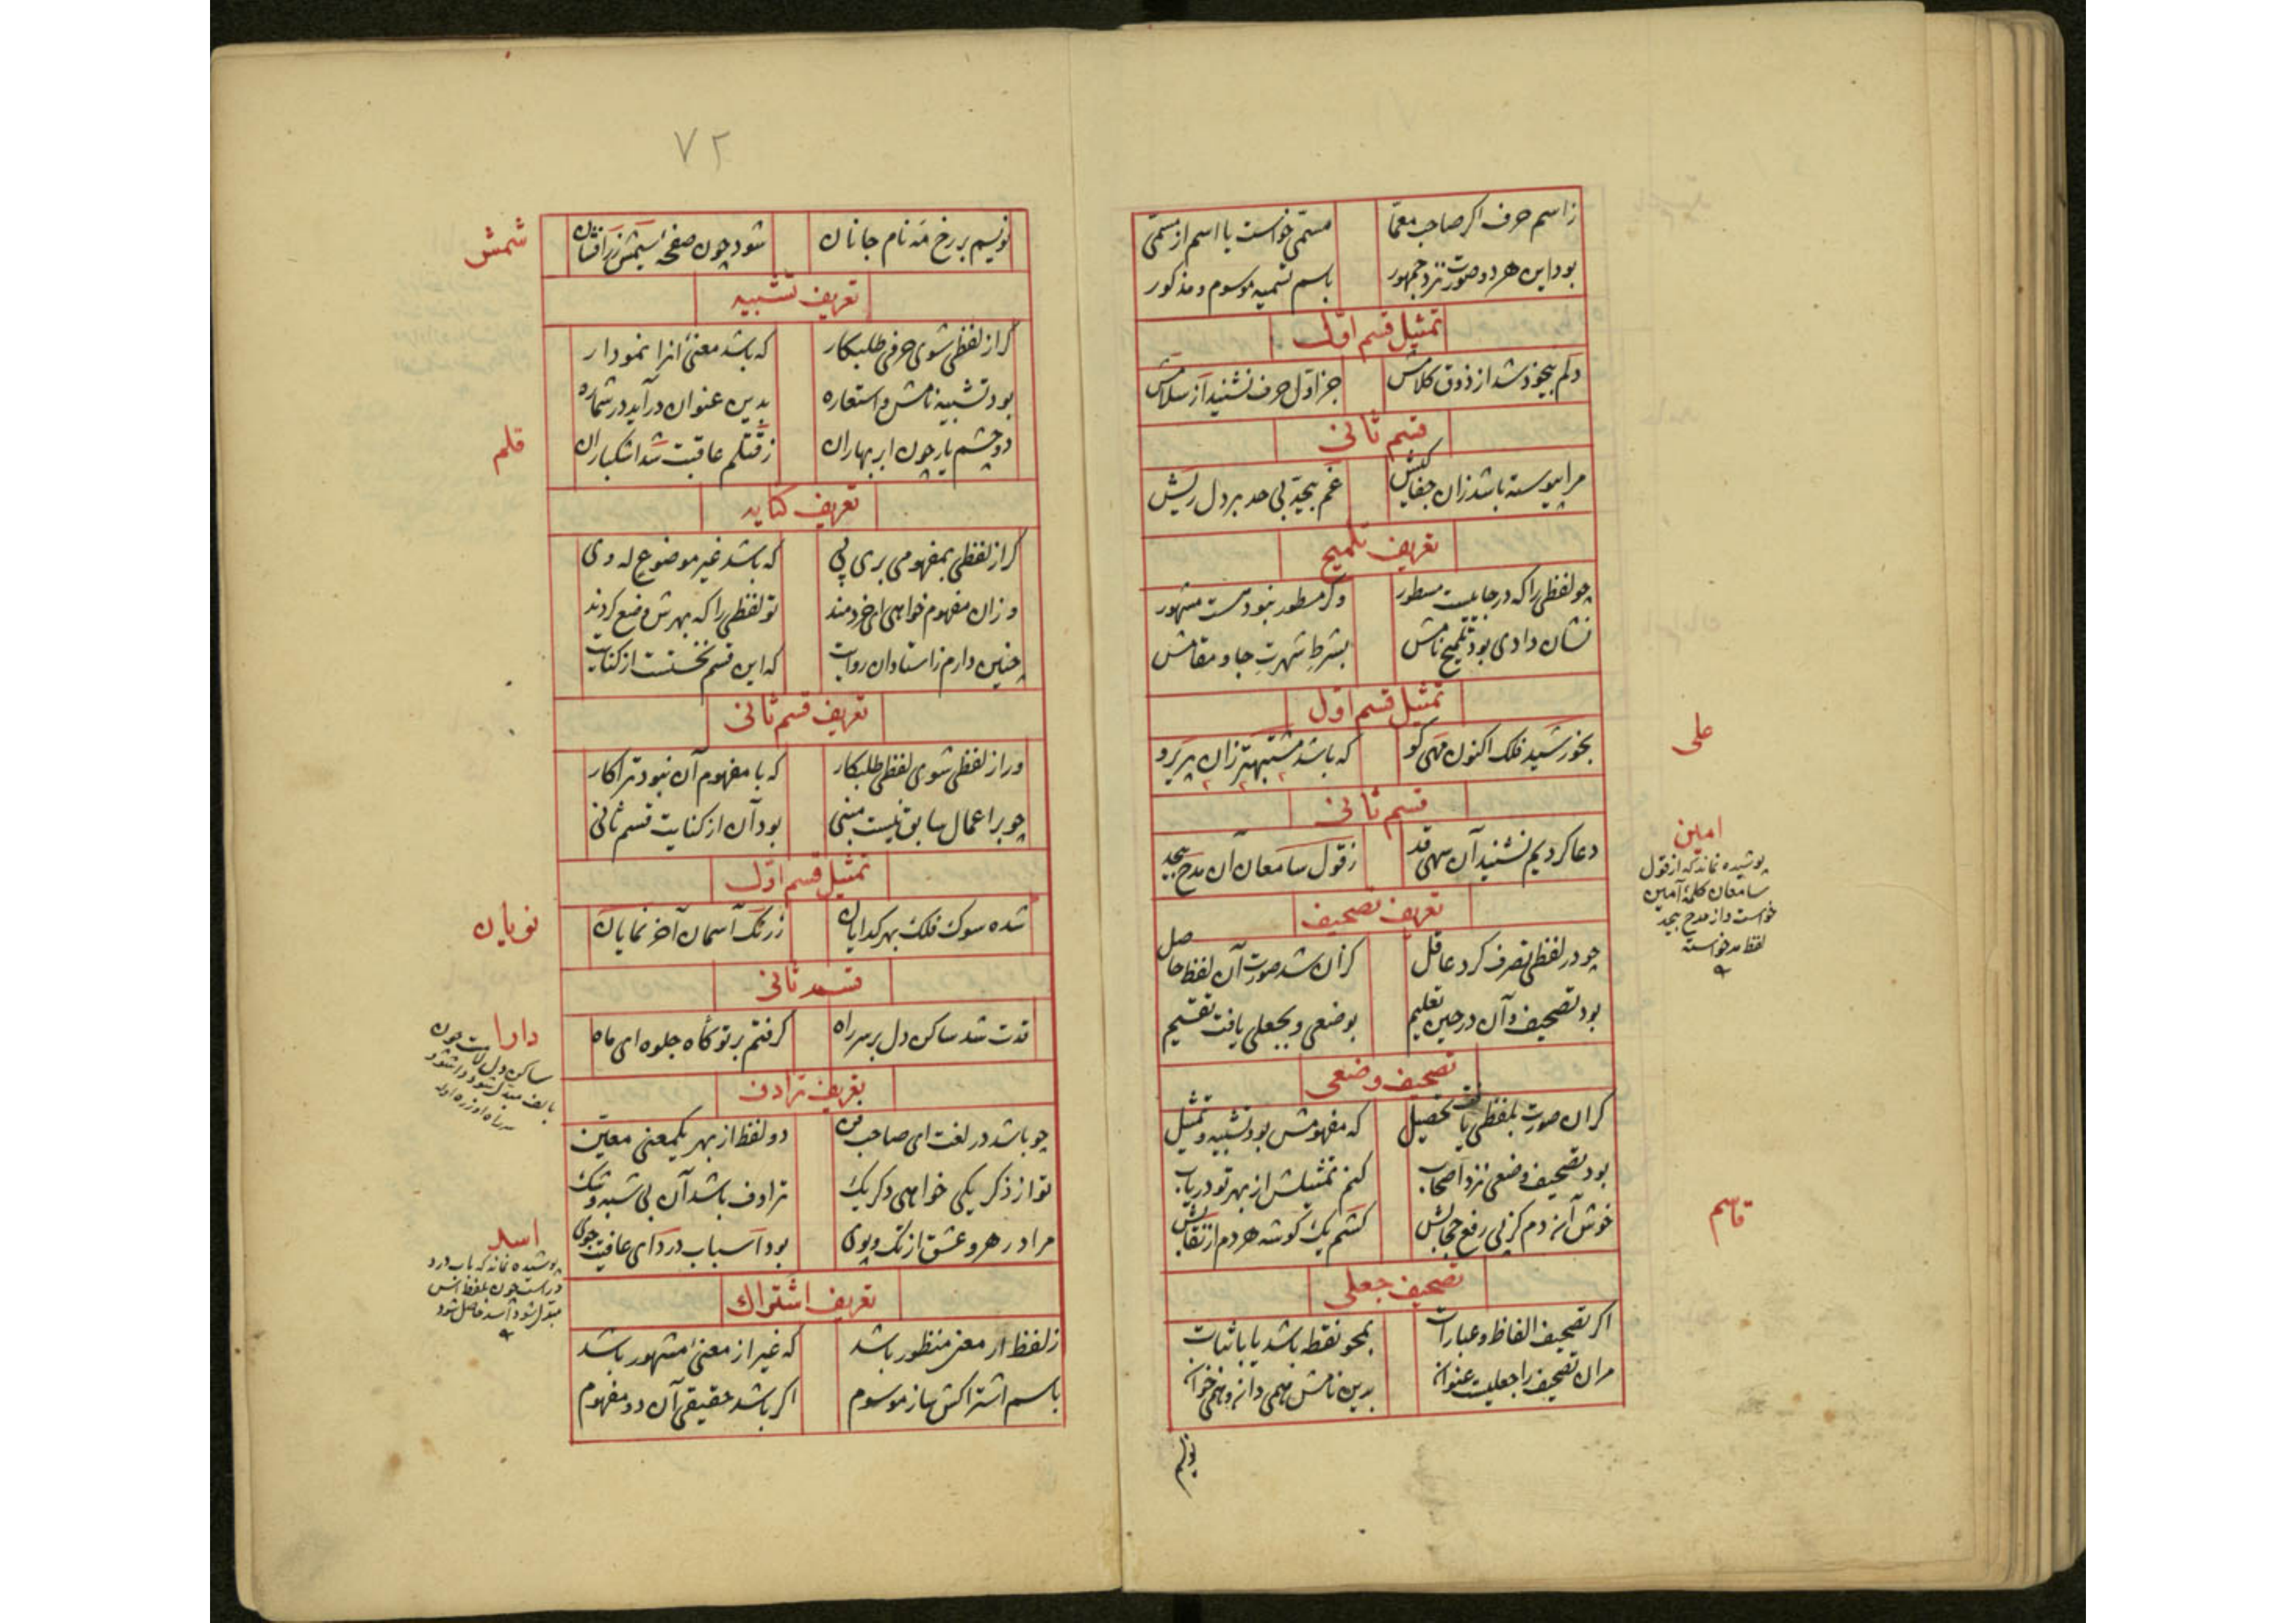 ز اسم حرف اکر صاحب معمّا مسمّی خواست یا اسم از مسمّی
بود این هر دو صورت نزد جمهور باسم تسمیه موسوم و مذکور
تمثیل قسم اوّل
دلم بیخود شد از ذوق کلامش جز اوّل حرف نشنید از سلامش
قسم ثانی
مرا پیوسته باشد زان جفاکیش غم بیحدّ بی حد بر دل ریش
تعریف تلمیح
چو لفظی را که در جاییست مسطور وکر مسطور نبود هست مشهور
نشان دادی بود تلمیح نامش بشرط شهرتِ جا و مقامش
تمثیل قسم اوّل
بخورشید فلک اکنون مهی کو که باشد مشتبهتر زان پریرو
علی
قسم ثانی
دعا کردیم نشنید آن سهی قد ز قول سامعان آن مدح بیحد
امین
پوشیده نماند که از قول
سامعان کلمهٔ آمین
خواست و از مدح بیحد
لفظ مد خواسته
تعریف تصحیف
چو در لفظی تصرف کرد عاقل کزان شد صورت آن لفظ حاصل
بود تصحیف و آن در حین تعلیم بوضعی و بجعلی یافت تقسیم
تصحیف وضعی
کر ان صورت بلفظی یافت تحصیل که مفهومش بود تشبیه و تمثیل
بود تصحیف وضعی نزد اصحاب کنم تمثیلش از بهر تو دریاب
خوش آندم کز پی رفع حجابش کشم یک کوشه هر دم از نقابش
قاسم
تصحیف جعلی
اکر تصحیف الفاظ و عبارات بمحو نقطه باشد یا باثبات
مران تصحیف را جعلیست عنوان بدین نامش همی دان و همی خوان
نویسم
۷۲
نویسم بر رخ مه نام جانان شود چون صفحهٔ سیمش زرافشان
شمش
تعریف تشبیه
کر از لفظی شوی حرفی طلبکار که باشد معنئ انرا نمودار
بود تشبیه نامش و استعاره بدین عنوان درآید در شماره
دو چشم یار چون ابر بهاران ز قتلم عاقبت شد اشکباران
قلم
تعریف کنایه
کر از لفظی بمفهومی بری پی که باشد غیر موضوع له وی
و زان مفهوم خواهی ای خردمند تو لفظی را که بهرش وضع کردند
چنین دارم ز استادان روایت که این قسم نخستست از کنایت
تعریف قسم ثانی
ور از لفظی شوی لفظی طلبکار که با مفهوم آن نبود ترا کار
چو بر اعمال سابق نیست مبنی بود آن از کنایت قسم ثانی
تمثیل قسم اوّل
شده سوک فلک بهر کدایان ز رنک آسمان آخر نمایان
نویان
قسم ثانی
قدت شد ساکن دل بر سر راه کرفتم بر تو کاه جلوه ای ماه
دارا
تعریف ترادف
چو باشد در لغت ای صاحب فن دو لفظ از بهر یکمعنی معیّن
تو از ذکر یکی خواهی دکر یک ترادف باشد آن بی شبه و شک
مراد رهرو عشق از تک و پوی بود آسباب درد ای عافیت جوی
اسد
پوشیده نماند که باب درد
در است چون بلفظ اس
مبدل شود اسد حاصل شود
تعریف اشتراک
ز لفظ ار معنی منظور باشد که غیر از معنئ مشهور باشد
باسم اشتراکش ساز موسوم اکر باشد حقیقی آن دو مفهوم